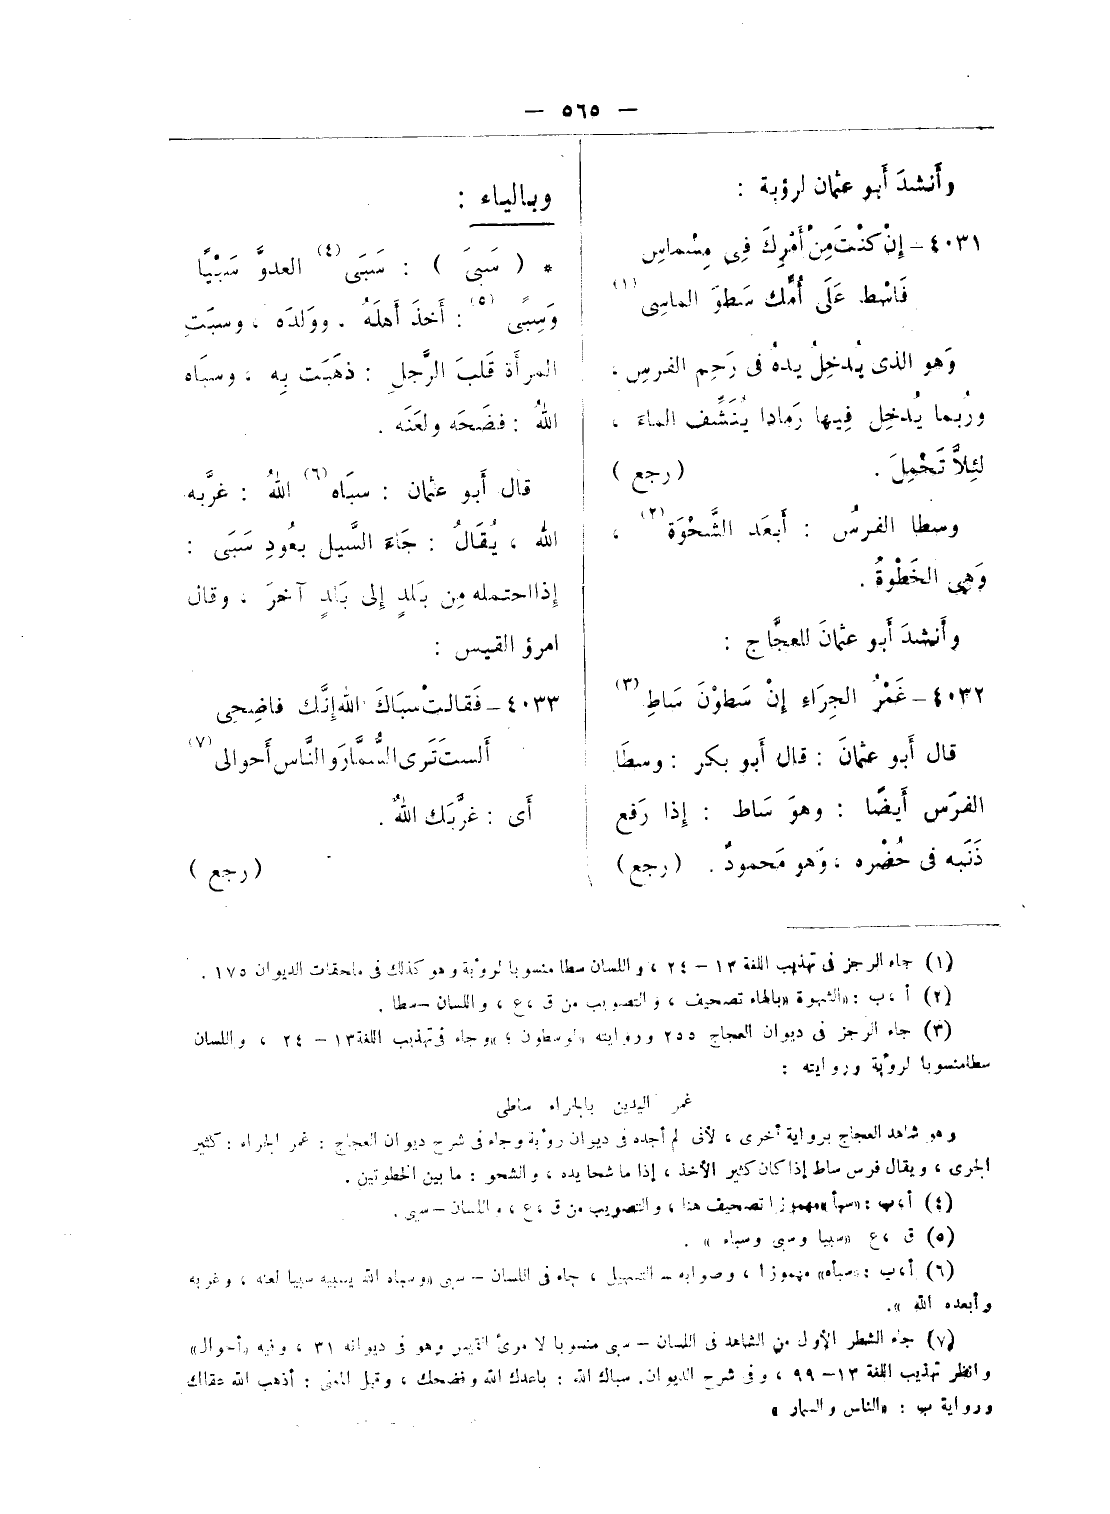 — ٥٦٥ —
وأَنشدَ أَبو عثمان لرؤبة :
٤٠٣١ – إِنْ كنْتَ مِنْ أَمْرِكَ فِى مِسْماسِ
فَاسْط عَلَى أُمِّك سَطوَ الماسِى (١)
وَهو الذى يُدخِلُ يدهُ فى رَحِم الفرسِ ،
ورُبما يُدخِل فِيها رَمادا يُنَشِّف الماءَ ،
لئِلاَّ تَحْمِلَ . (رجع)
وسطا الفرسُ : أَبعَد الشَّحْوَة (٢) ،
وَهِى الخَطْوةُ .
وأَنشدَ أَبو عثمانَ للعجَّاج :
٤٠٣٢ – غَمْرُ الجِرَاءِ إِنْ سَطوْنَ سَاطِ (٣)
قال أَبو عثمانَ : قال أَبو بكر : وسطَا
الفرَس أَيضًا : وهوَ سَاط : إِذا رَفع
ذَنَبه فى حُضْره ، وَهو مَحمودٌ . (رجع)
وبالياء :
* ( سَبىَ ) : سَبَى (٤) العدوَّ سَبْيًا
وَسِبًى (٥) : أَخذَ أَهلَهُ . ووَلدَه ، وسبَتِ
المرأَة قَلبَ الرَّجلِ : ذهَبَت بِه ، وسبَاه
اللهُ : فضَحَه ولعَنَه .
قال أَبو عثمان : سبَاه (٦) اللهُ : غرَّبه
الله ، يُقَالُ : جَاءَ السَّيل بعُودِ سَبَى :
إِذا احتمله مِن بَلدٍ إِلى بَلدٍ آخرَ ، وقال
امرؤ القيس :
٤٠٣٣ – فَقالتْ سبَاكَ الله إِنَّك فاضِحِى
أَلستَ تَرى السُّمَّارَ والنَّاس أَحوالى (٧)
أَى : غرَّبَك اللهُ .
(رجع)
(١) جاء الرجز فى تهذيب اللغة ١٣ – ٢٤ ، واللسان سطا منسوبا لرؤبة وهو كذلك فى ملحقات الديوان ١٧٥ .
(٢) أ ، ب : «الشهوة » بالهاء تصحيف ، والتصويب من ق ، ع ، واللسان – سطا .
(٣) جاء الرجز فى ديوان العجاج ٢٥٥ وروايته «لوسطون ؛ » وجاء فى تهذيب اللغة ١٣ – ٢٤ ، واللسان
سطا منسوبا لرؤبة وروايته :
غمر اليدين بالجراء ساطى
وهو شاهد العجاج برواية أخرى ، لأنى لم أجده فى ديوان رؤبة وجاء فى شرح ديوان العجاج : غمر الجراء : كثير
الجرى ، ويقال فرس ساط إذا كان كثير الأخذ ، إذا ما شحا يده ، والشحو : ما بين الخطوتين .
(٤) أ ، ب : «سبأ » مهموزا تصحيف هنا ، والتصويب من ق ، ع ، واللسان – سبى .
(٥) ق ، ع «سبيا وسبى وسباء » .
(٦) أ ، ب : «سبأه» مهموزا ، وصوابه – التسهيل ، جاء فى اللسان – سبى «وسباه الله يسبيه سبيا لعنه ، وغربه
وأبعده الله ».
(٧) جاء الشطر الأول من الشاهد فى اللسان – سبى منسوبا لا مرئ القيس وهو فى ديوانه ٣١ ، وفيه «أحوال»
وانظر تهذيب اللغة ١٣ – ٩٩ ، وفى شرح الديوان. سباك الله : باعدك الله وفضحك ، وقيل المعنى : أذهب الله عقالك
ورواية ب : «الناس والسمار »